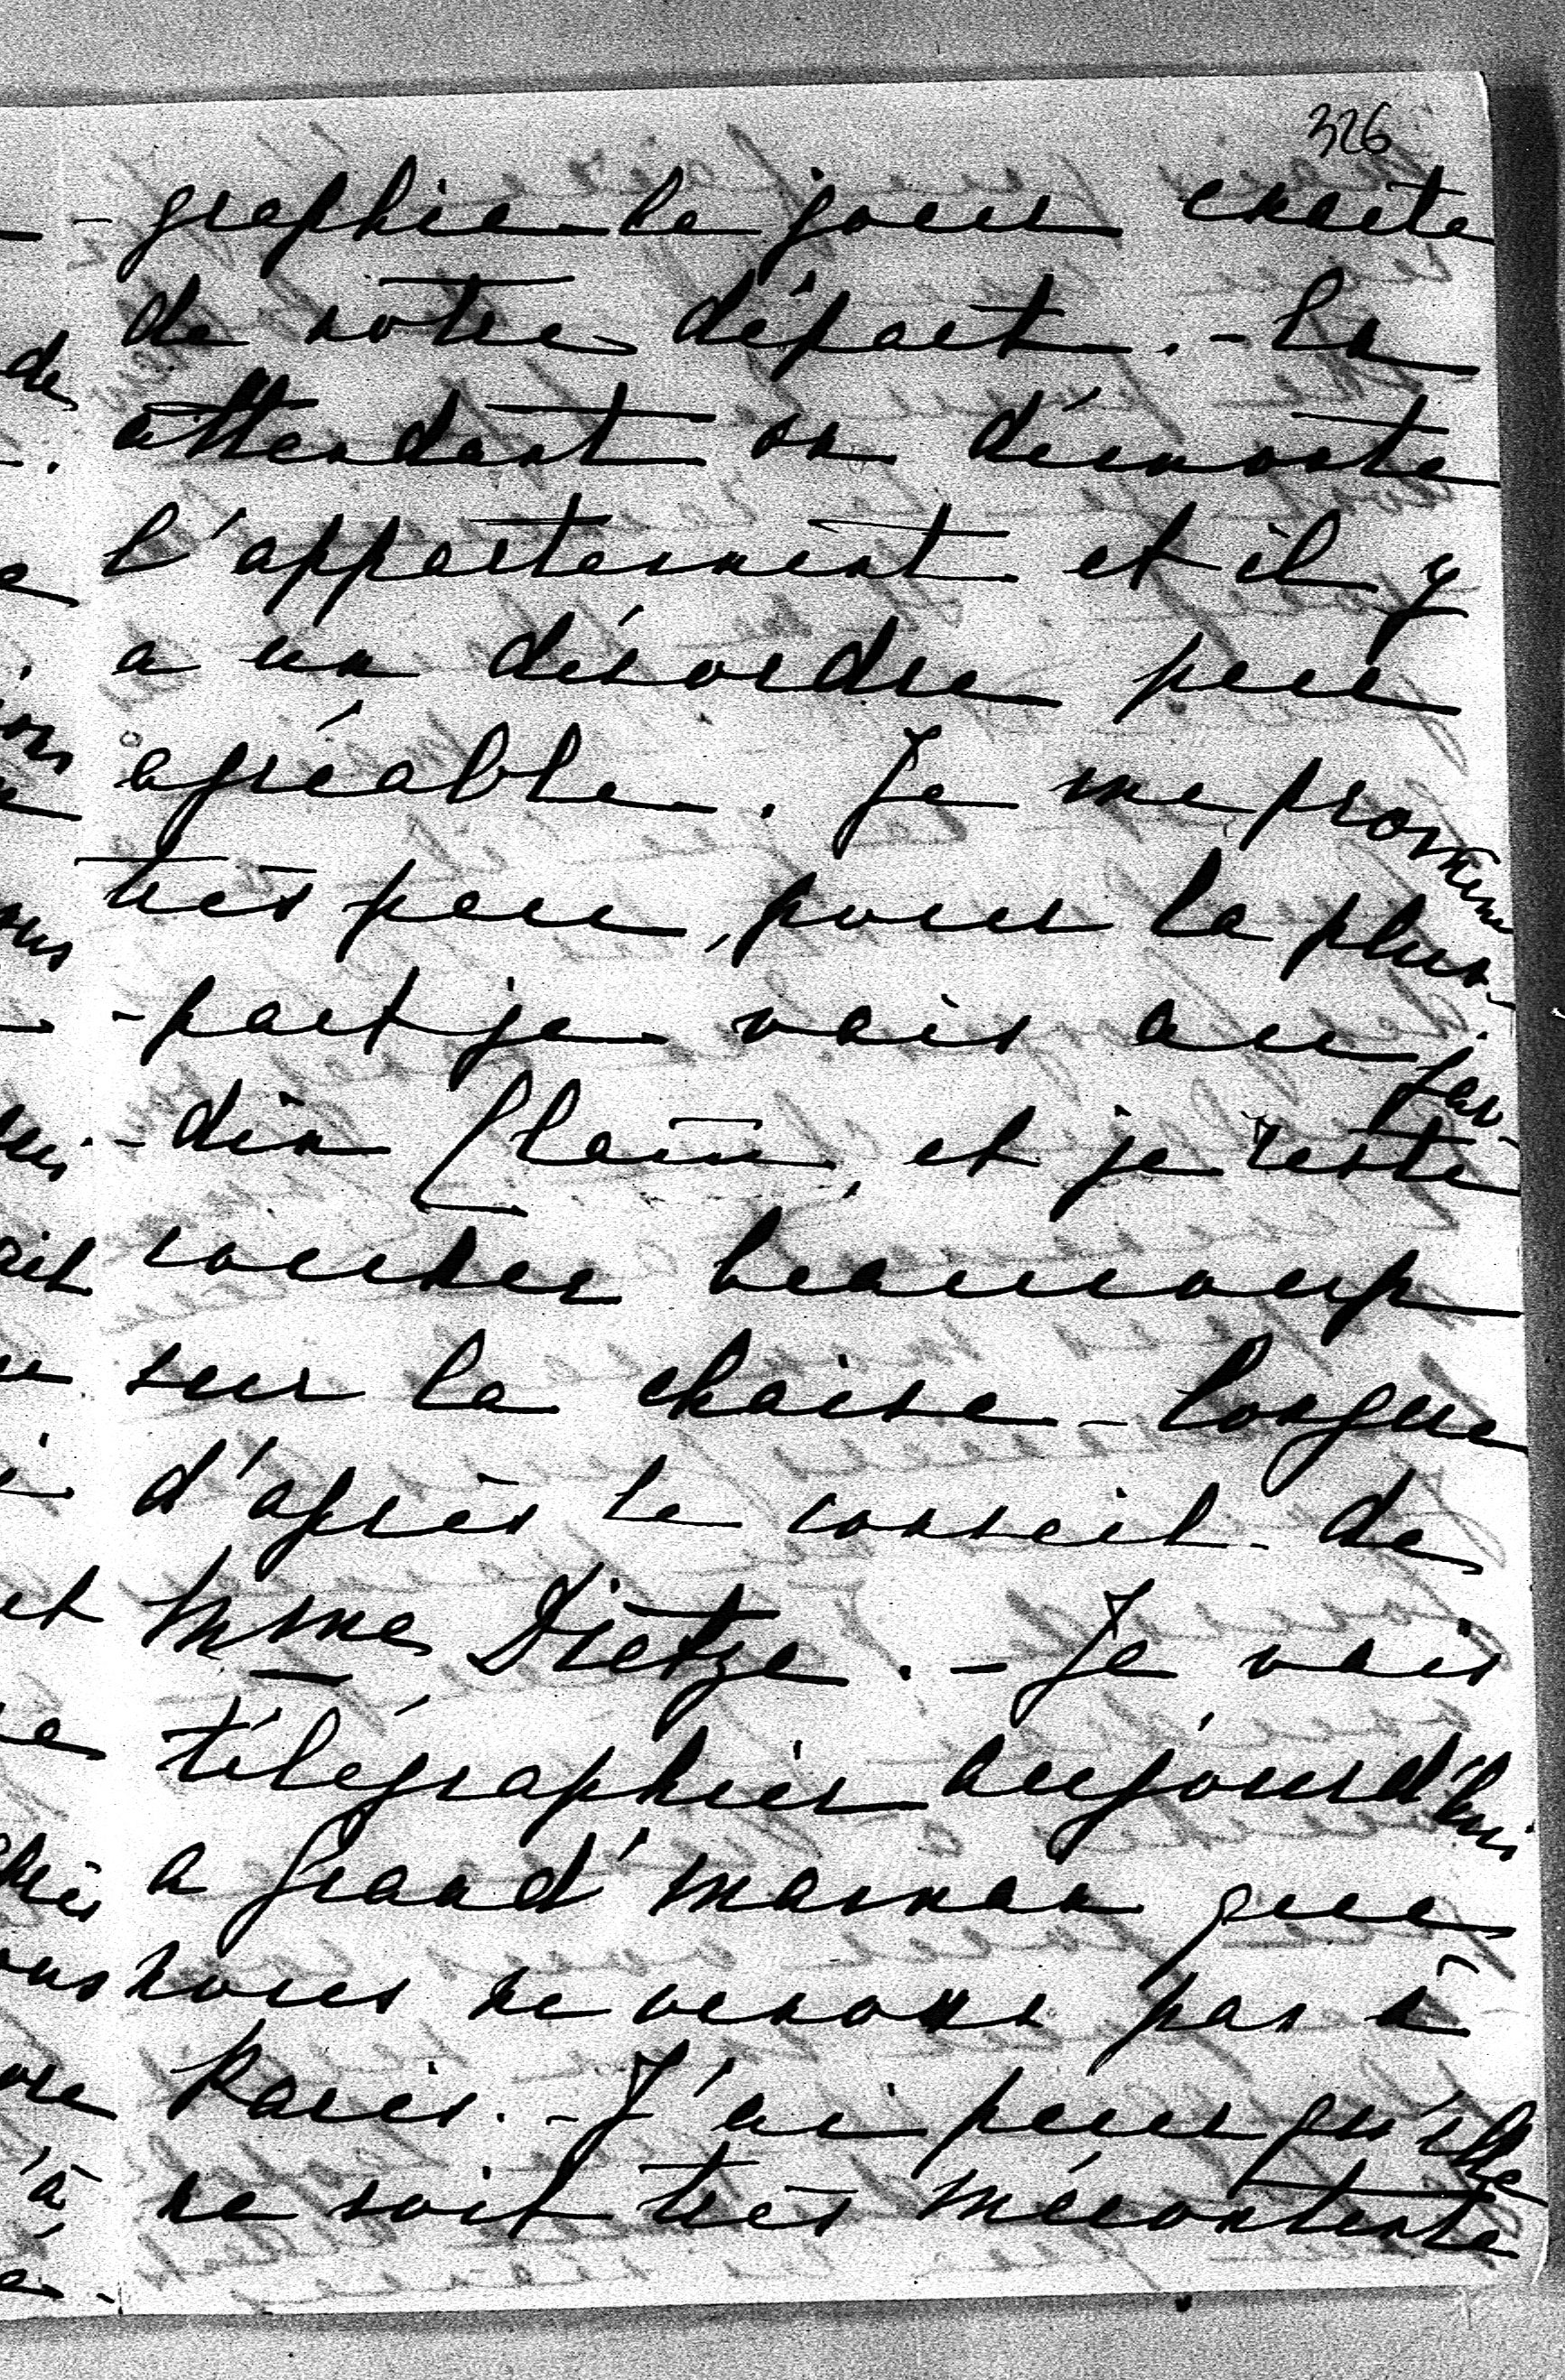 326
- graphie le jour exacte
de nôtre départ. - En
attendant on démonte
l'appartement et il y
a un désordre peu
agréable. Je me promène
très peu, pour la plus-
- part je vais au jar-
- din et je reste
coucher beaucoup
sur la chaise-longue
d'après le conseil de
Mme Dietze. - Je vais
télégraphier aujourd'hui
a Grand'maman que
nous ne venons pas à
Paris. - J'ai peur qu'elle
ne soit très mécontente